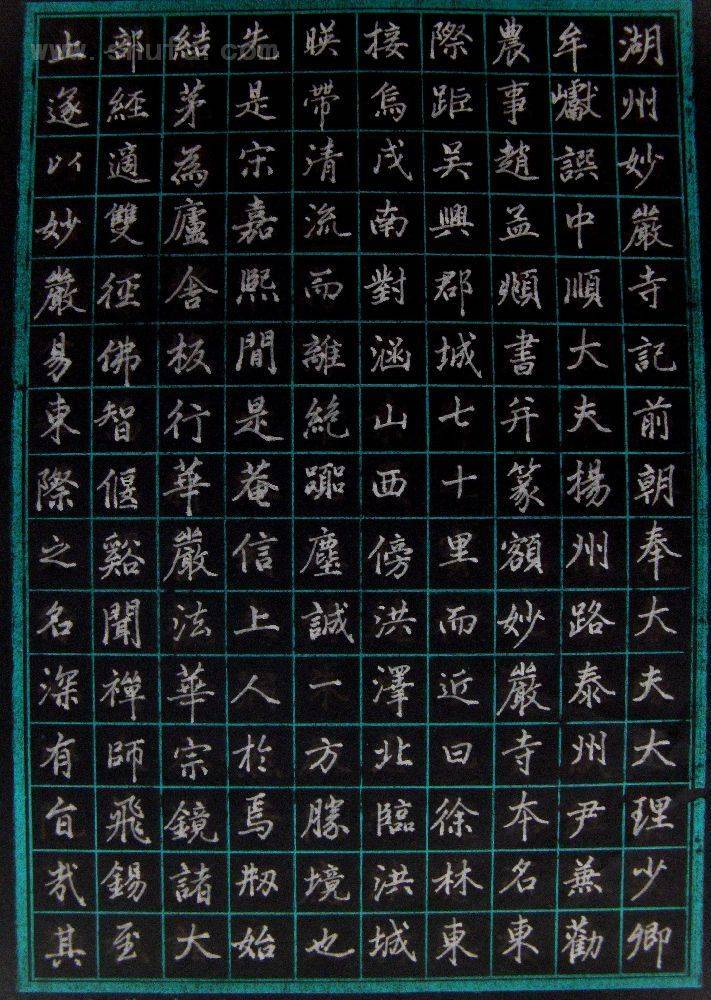 湖州妙嚴寺記前朝奉大夫大理少卿
牟巘譔中順大夫楊州路泰州尹兼勸
農事趙孟頫書并篆額妙嚴寺本名東
際距吳興郡城七十里而近曰徐林東
接烏戍南對涵山西傍洪澤北臨洪城
暎帶清流而離絕塵誠一方勝境也
先是宋嘉熙間是菴信上人於焉刱始
結茅為廬舍板行華嚴法華宗鏡諸大
部經適雙徑佛智偃谿聞禪師飛錫至
止遂以妙嚴易東際之名深有旨哉其